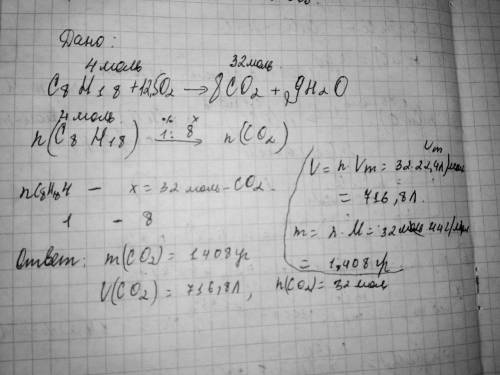 Дано:
4 моль 32 моль
C8H18 + 12,5O2 → 8CO2 + 9H2O
4 моль
n(C8H18) 1:8 x → n(CO2)
nC8H18 4 — x = 32 моль - CO2
1 - 8
Vm
V = n · Vm = 32 · 22,4 л/моль
= 716,8 л
m = n · M = 32 моль · 44 г/моль
= 1,408 гр
Ответ: m(CO2) = 1408 гр
V(CO2) = 716,8 л, n(CO2) = 32 мол